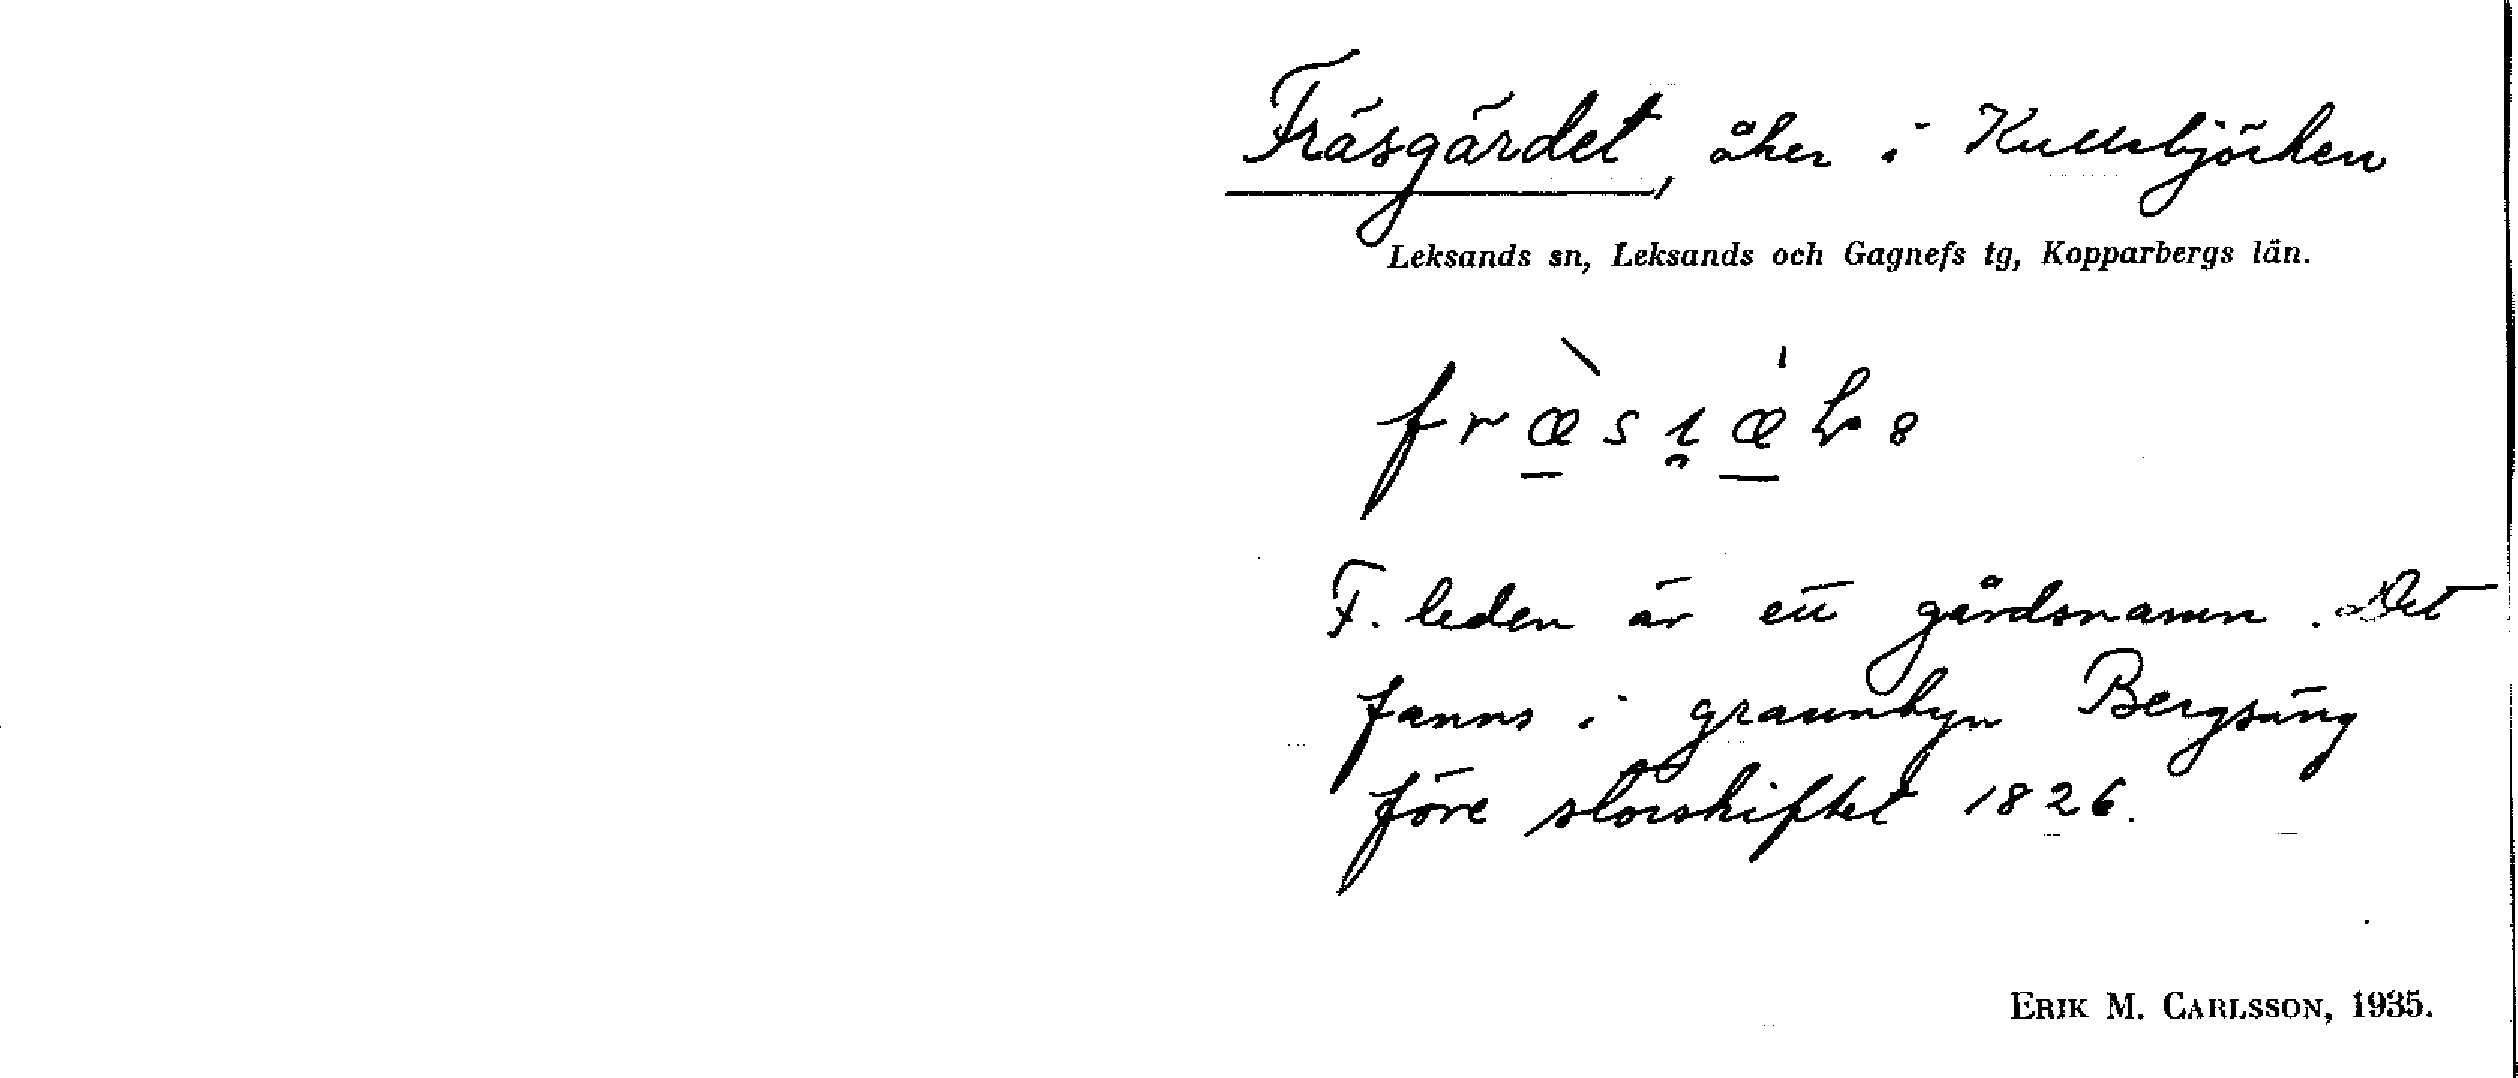 Fräsgärdet, åker i Kullsbjörken
Leksands sn, Leksands och Gagnefs tg, Kopparbergs län.
F. leden är ett gårdsnamn. Det
fanns i grannbyn Bergsäng
före storskiftet 1826.
ERIK M. CARLSSON, 1935.